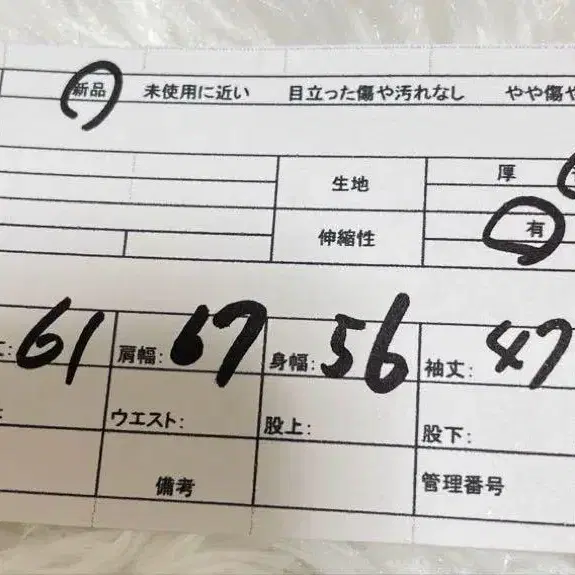 新品 未使用に近い 目立った傷や汚れなし やや傷や
生地 厚
伸縮性 有
丈: 61 肩幅: 67 身幅: 56 袖丈: 47
ウエスト: 股上: 股下:
備考 管理番号